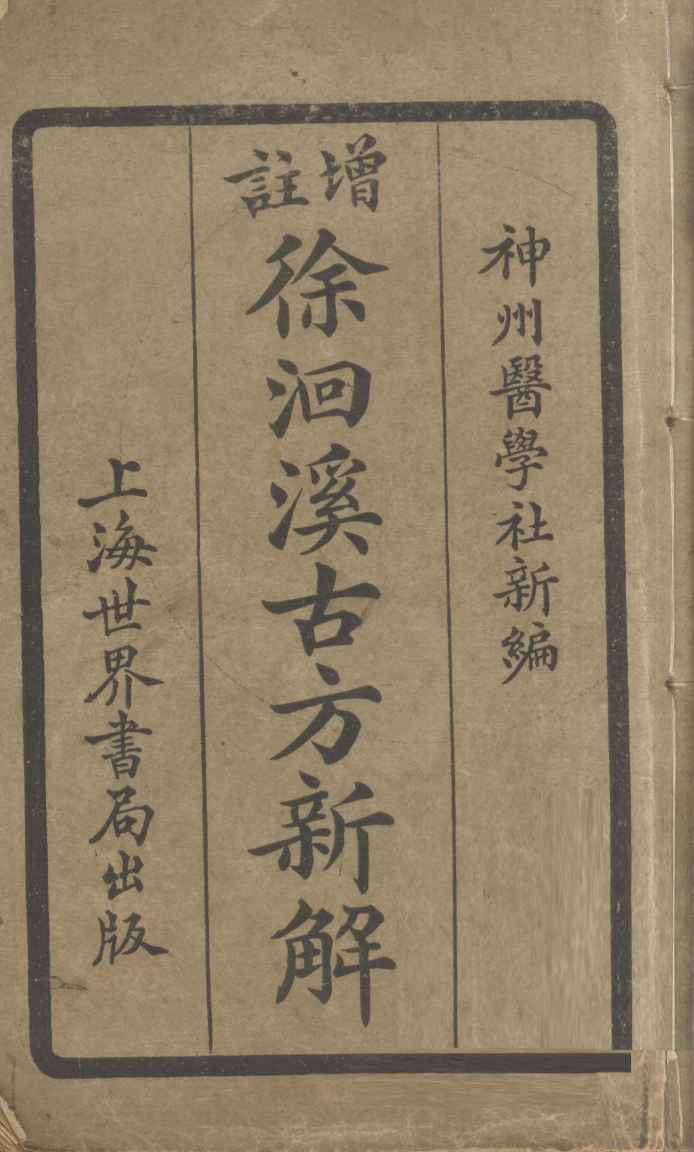 神州醫學社新編
增註
徐洄溪古方新解
上海世界書局出版